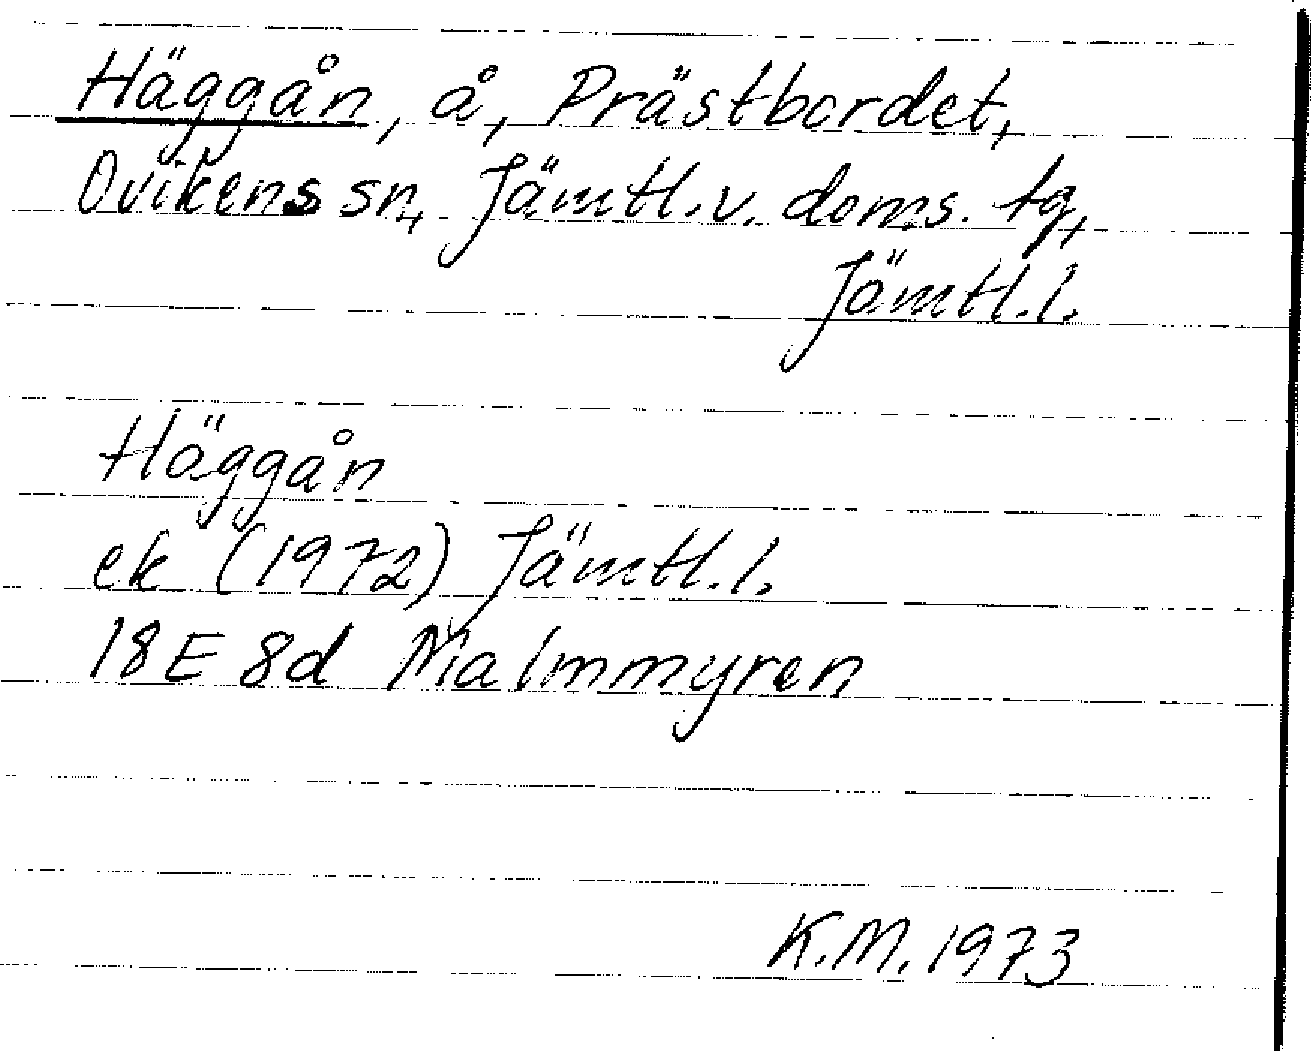 Häggån, å, Prästbordet,
Ovikens sn, Jämtl. v. doms. tg,
Jämtl. l.
Häggån
ek (1972) Jämtl. l.
18 E 8d Malmmyren
K.M. 1973